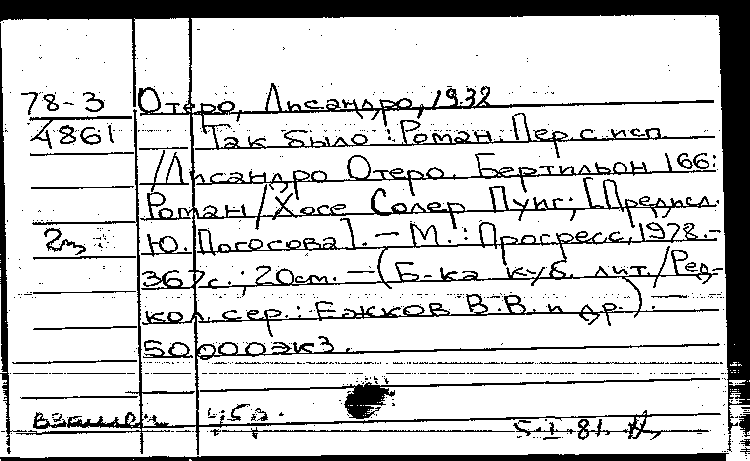 78-3 Отеро, Лисандро, 1932
4861 Так было: Роман. Пер. с исп.
/Лисандро Отеро. Бертильон 166:
Роман/Хосе Солер Пуиг; [Предисл.
2 Ю. Погосова]. - М.: Прогресс, 1978.-
367с.; 20см. - (Б-ка куб. лит./Ред-
кол. сер.: Ежков В.В. и др.).
50.000экз.
5.I.81.